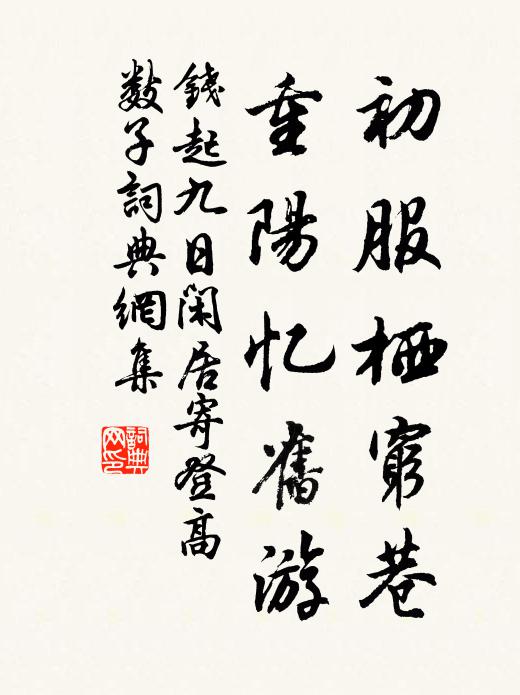 初服栖窮巷
重陽忆舊游
錢起九日閑居寄登高
數子詞典網集
詞典
网印